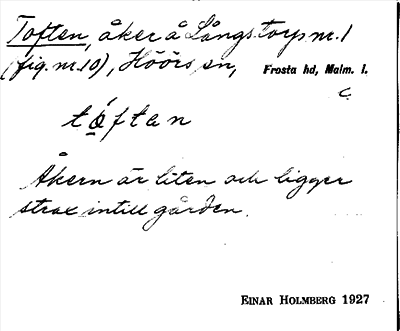 Toften, åker å Långstorp nr. 1
(fig. nr. 10), Höörs sn, Frosta hd, Malm. l.
c.
tóften
Åkern är liten och ligger
strax intill gården.
EINAR HOLMBERG 1927